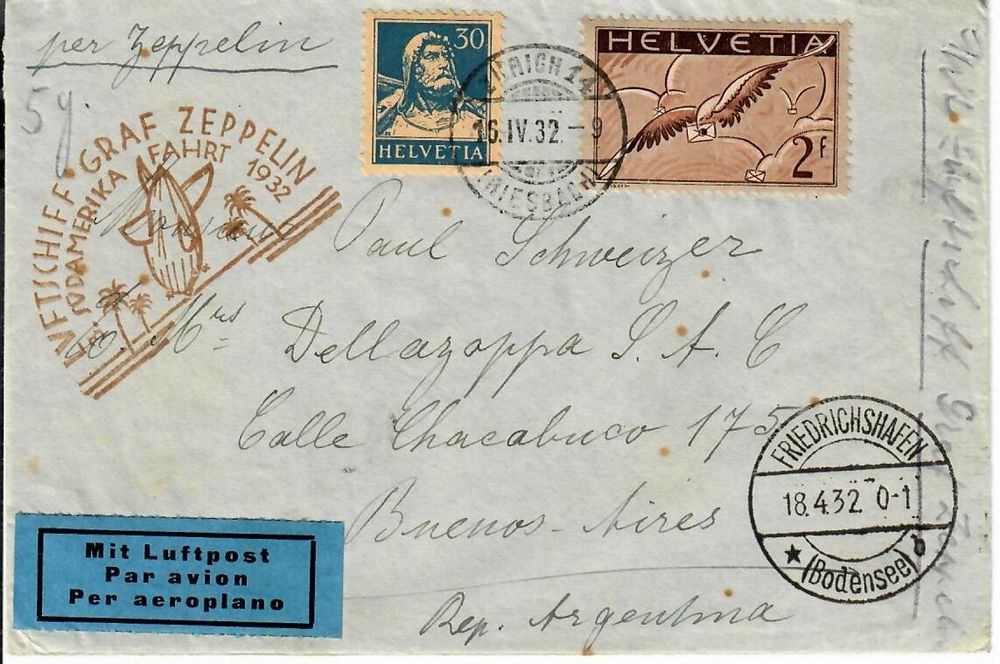 per Zeppelin
5 g.
LUFTSCHIFF GRAF ZEPPELIN
SÜDAMERIKA FAHRT 1932
30
HELVETIA
ZÜRICH 14
16.IV.32.-9
(RIESBACH)
HELVETIA
2F.
Monsieur Paul Schweizer
Mrs Dellazoppa S. A. C
Calle Chacabuco 175
Buenos-Aires
Rep. Argentina
FRIEDRICHSHAFEN
18.4.32 0-1
b
(Bodensee)
Mit Luftpost
Par avion
Per aeroplano